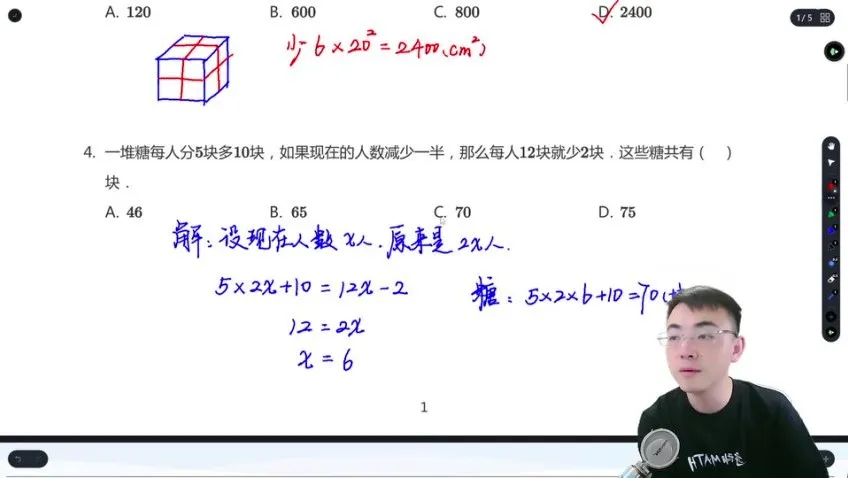 A. 120 B. 600 C. 800 D. 2400
少 6×20²=2400(cm²)
4. 一堆糖每人分5块多10块，如果现在的人数减少一半，那么每人12块就少2块．这些糖共有（ ）
块．
A. 46 B. 65 C. 70 D. 75
解：设现在人数x人．原来是2x人．
5×2x+10=12x-2
糖：5×2×6+10=70(
12=2x
x=6
1
1/5
HTAM